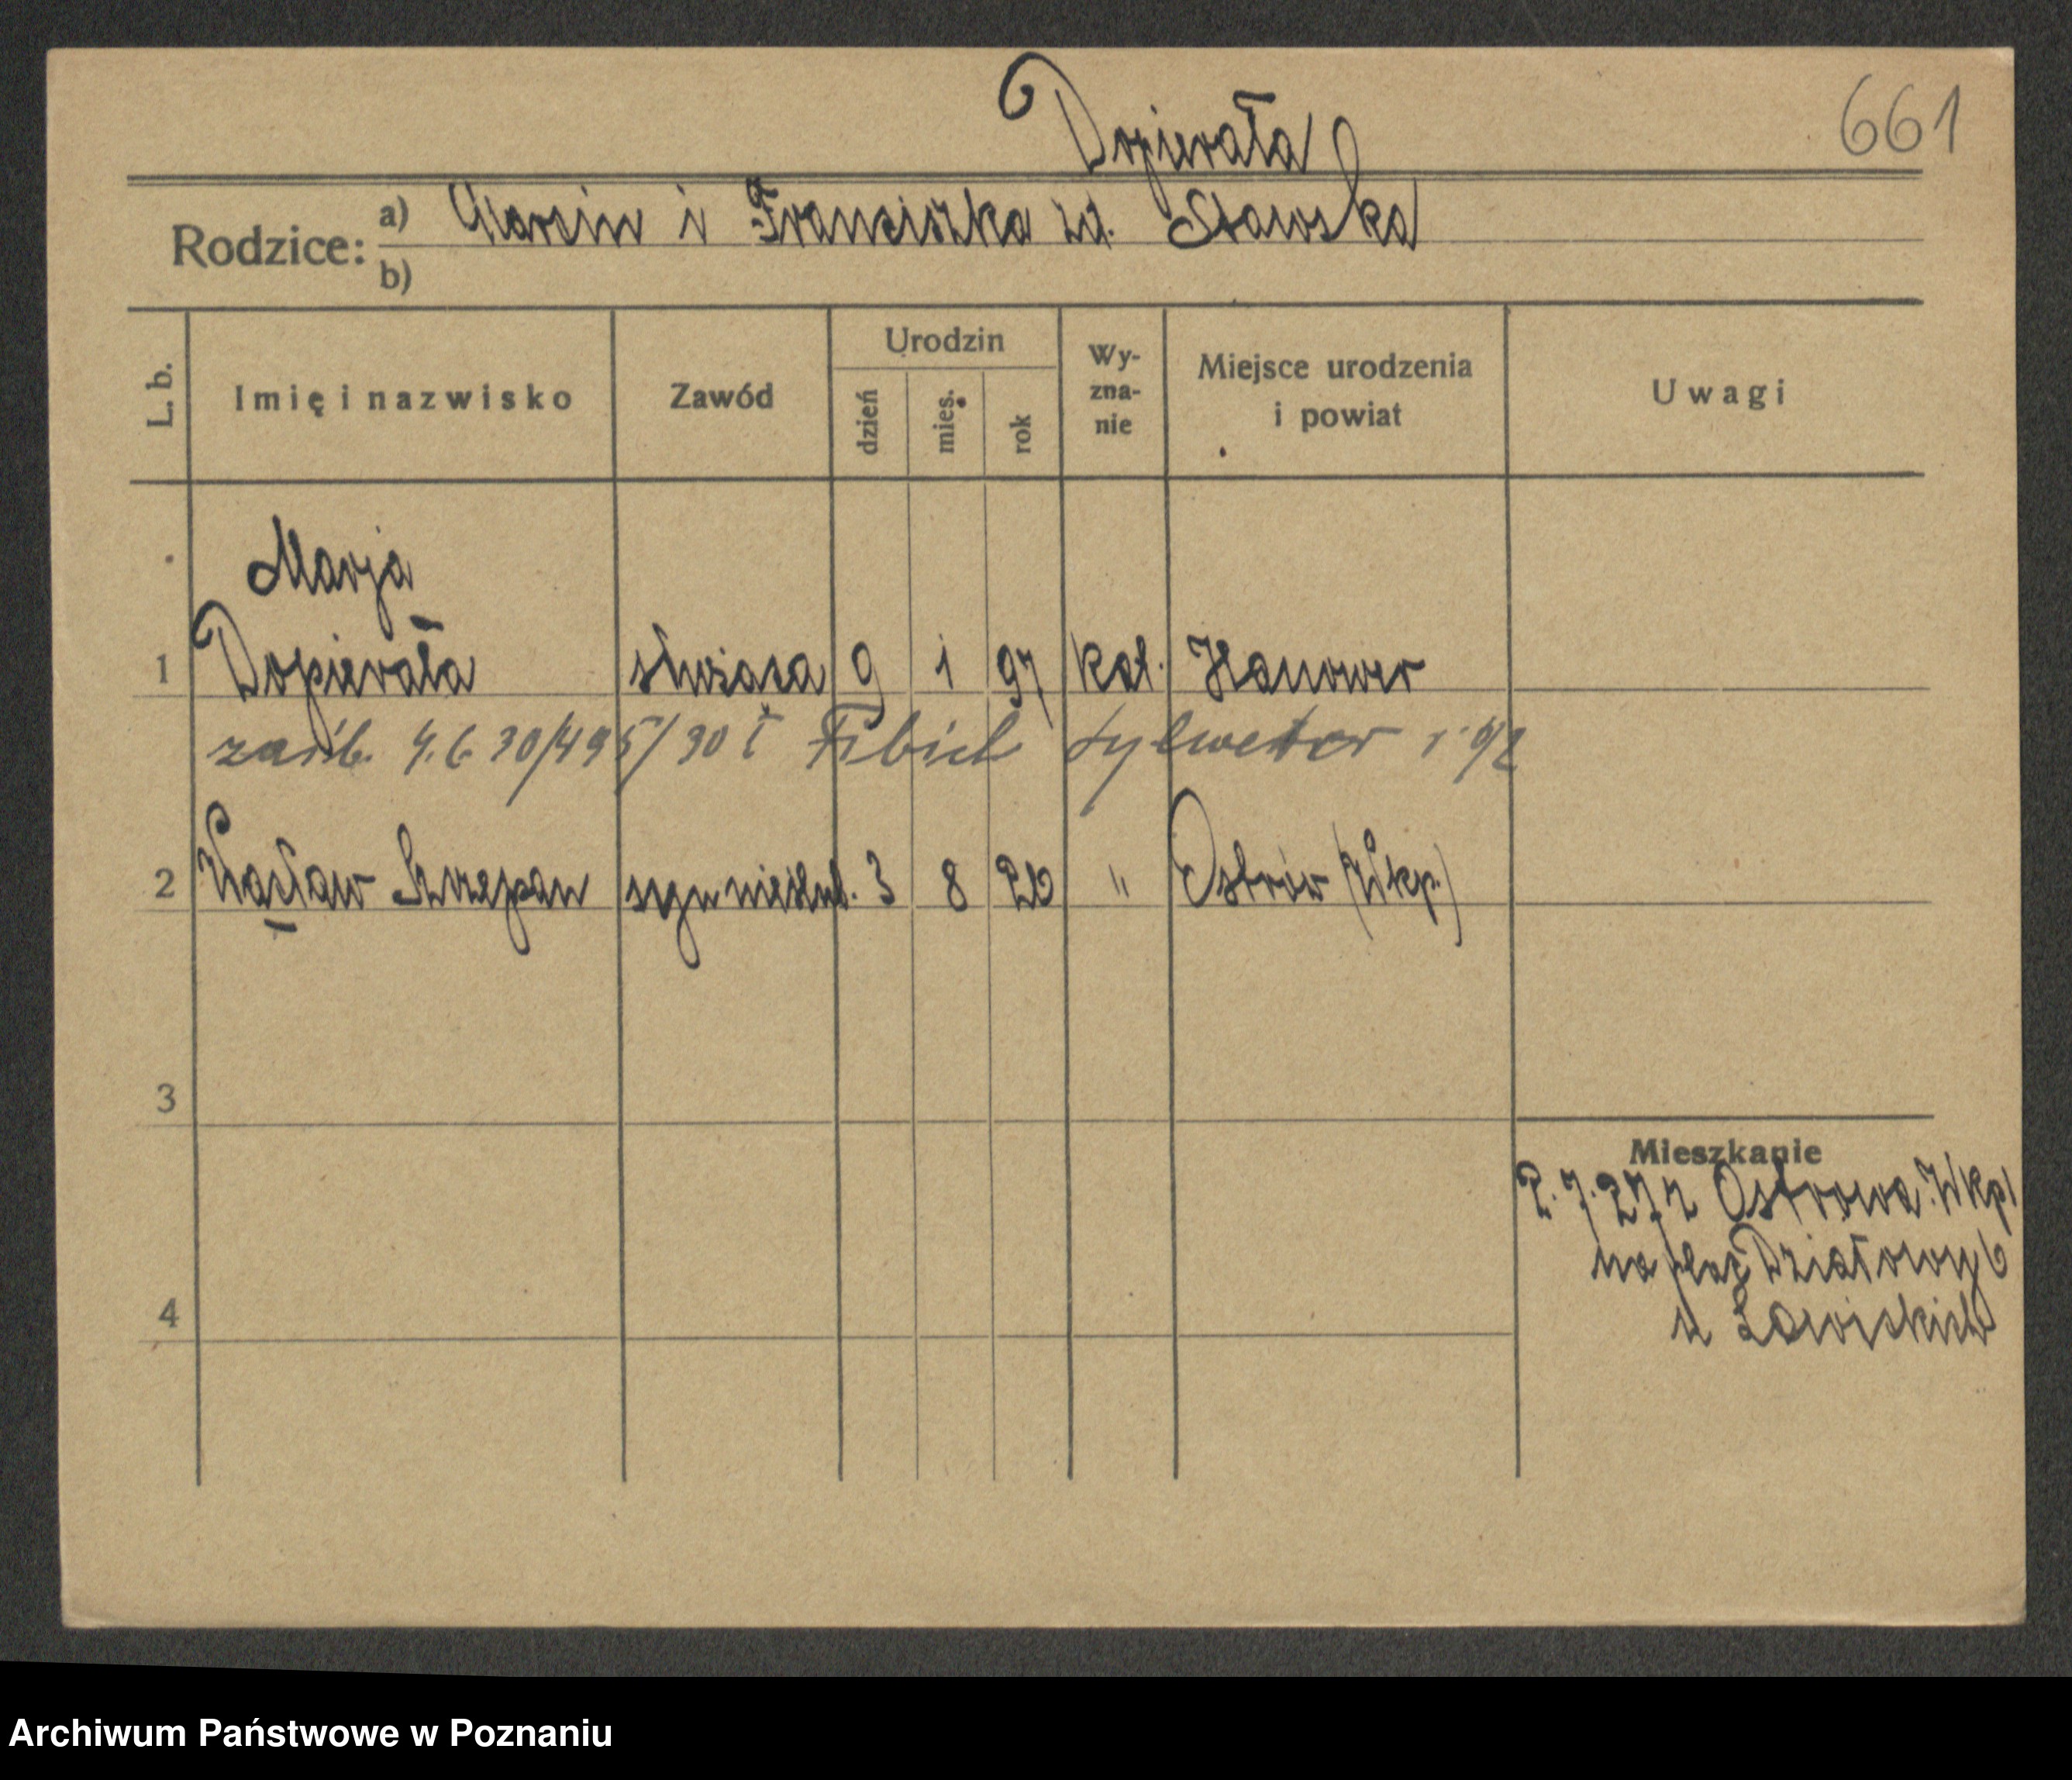 661
Dopierała
Rodzice: a) Marcin i Franciszka zd. Stawska
b)
L. b. Imię i nazwisko Zawód Urodzin dzień mies. rok Wy-zna-nie Miejsce urodzenia i powiat Uwagi
Marja
1 Dopierała służąca 9 1 97 kat. Hanower
zaśb. 4.6 30/495/30 Fibich Sylwester
2 Wacław Szczepan syn nieślub. 3 8 26 " Ostrów (Wkp.)
3
Mieszkanie
2.7.27 z Ostrowa Wkp.
na plac Działowy 6
4
u Zawiskich
Archiwum Państwowe w Poznaniu